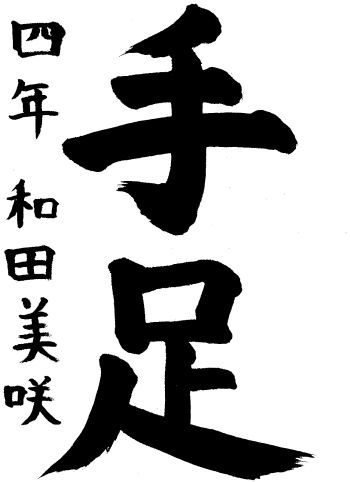 手足
四年 和田美咲